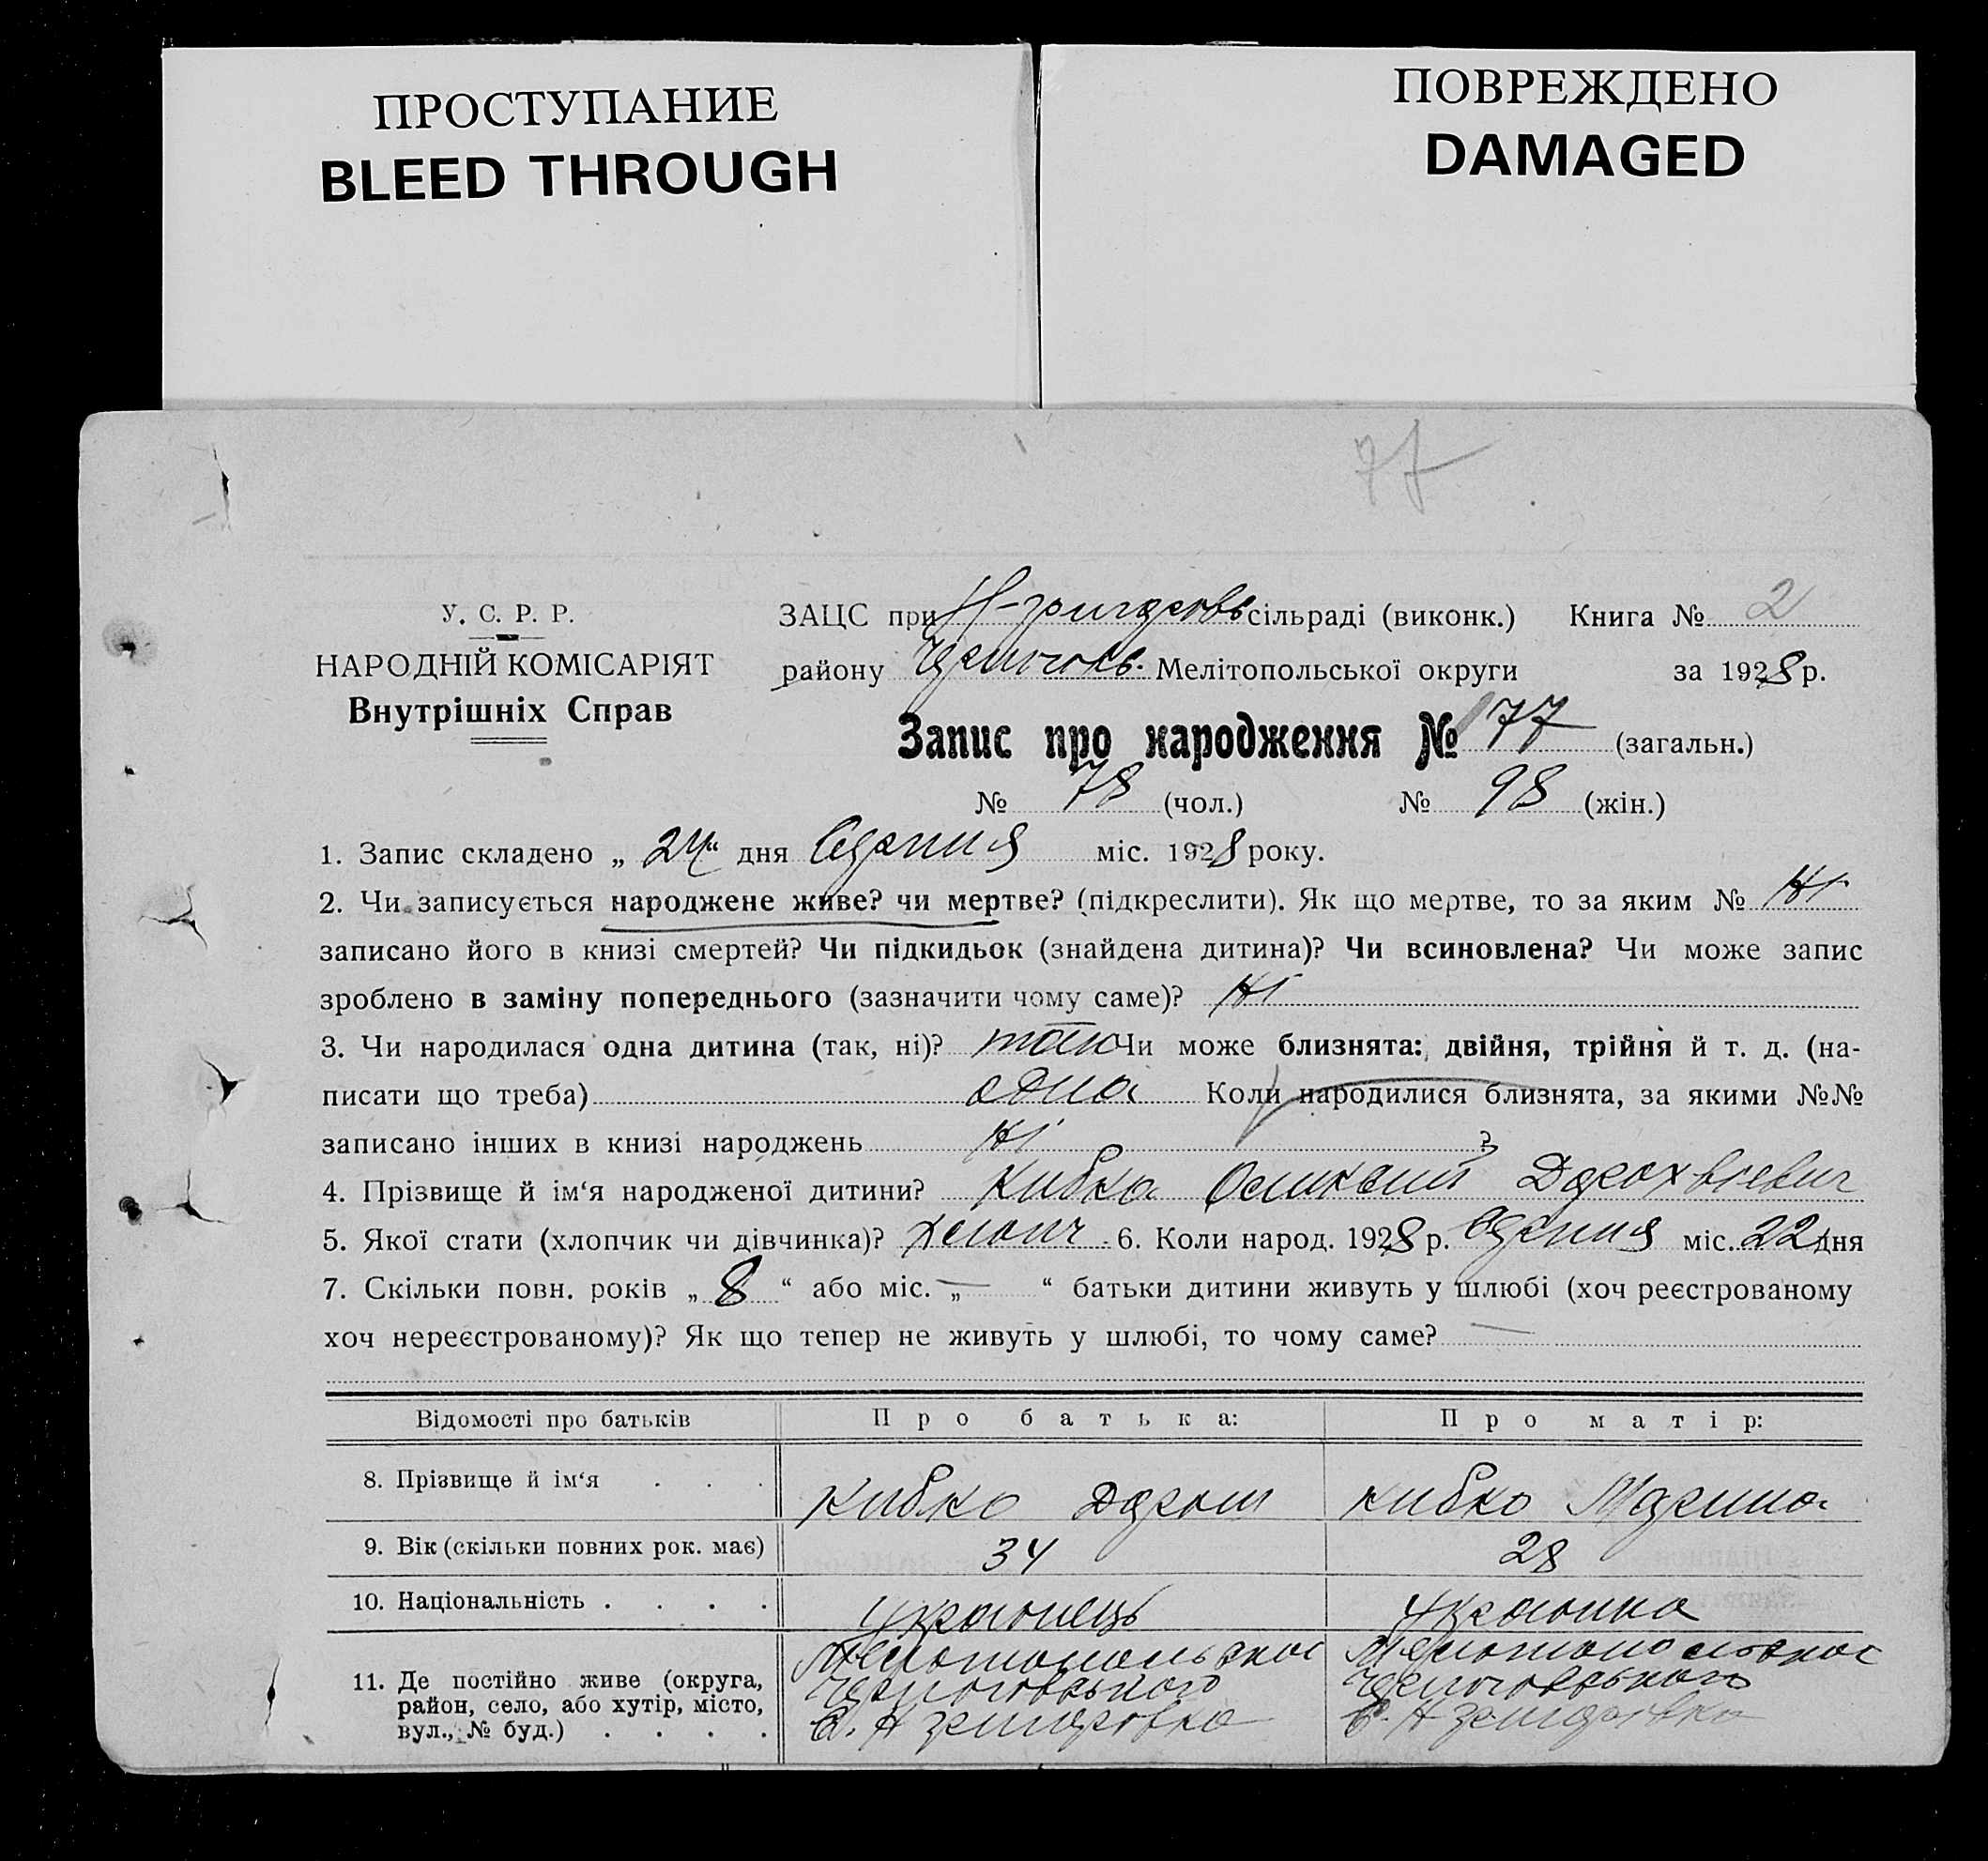 ПРОСТУПАНИЕ
BLEED THROUGH
ПОВРЕЖДЕНО
DAMAGED
77
У. С. Р. Р.
НАРОДНІЙ КОМІСАРІЯТ
Внутрішніх Справ
ЗАЦС при сільраді (виконк.) Книга № 2
району Мелітопольської округи за 1928 р.
Запис про народження № 77 (загальн.)
№ 78 (чол.) № 98 (жін.)
1. Запис складено „ 24 “ дня Серпня міс. 1928 року.
2. Чи записується народжене живе? чи мертве? (підкреслити). Як що мертве, то за яким № Ні
записано його в книзі смертей? Чи підкидьок (знайдена дитина)? Чи всиновлена? Чи може запис
зроблено в заміну попереднього (зазначити чому саме)? Ні
3. Чи народилася одна дитина (так, ні)? Чи може близнята: двійня, трійня й т. д. (на-
писати що треба) одна Коли народилися близнята, за якими №№
записано інших в книзі народжень Ні ?
4. Прізвище й ім‘я народженої дитини? Кибка
5. Якої стати (хлопчик чи дівчинка)? хлопч. 6. Коли народ. 1928 р. Серпня міс. 22 дня
7. Скільки повн. років „ 8 “ або міс. „ — “ батьки дитини живуть у шлюбі (хоч реєстрованому
хоч нереєстрованому)? Як що тепер не живуть у шлюбі, то чому саме? —
Відомості про батьків Про батька: Про матір:
8. Прізвище й ім‘я . . . Кибко Кибко Марина
9. Вік (скільки повних рок. має) 34 28
10. Національність . . . . Украінець Украінка
11. Де постійно живе (округа,
район, село, або хутір, місто,
вул., № буд.) . . . .